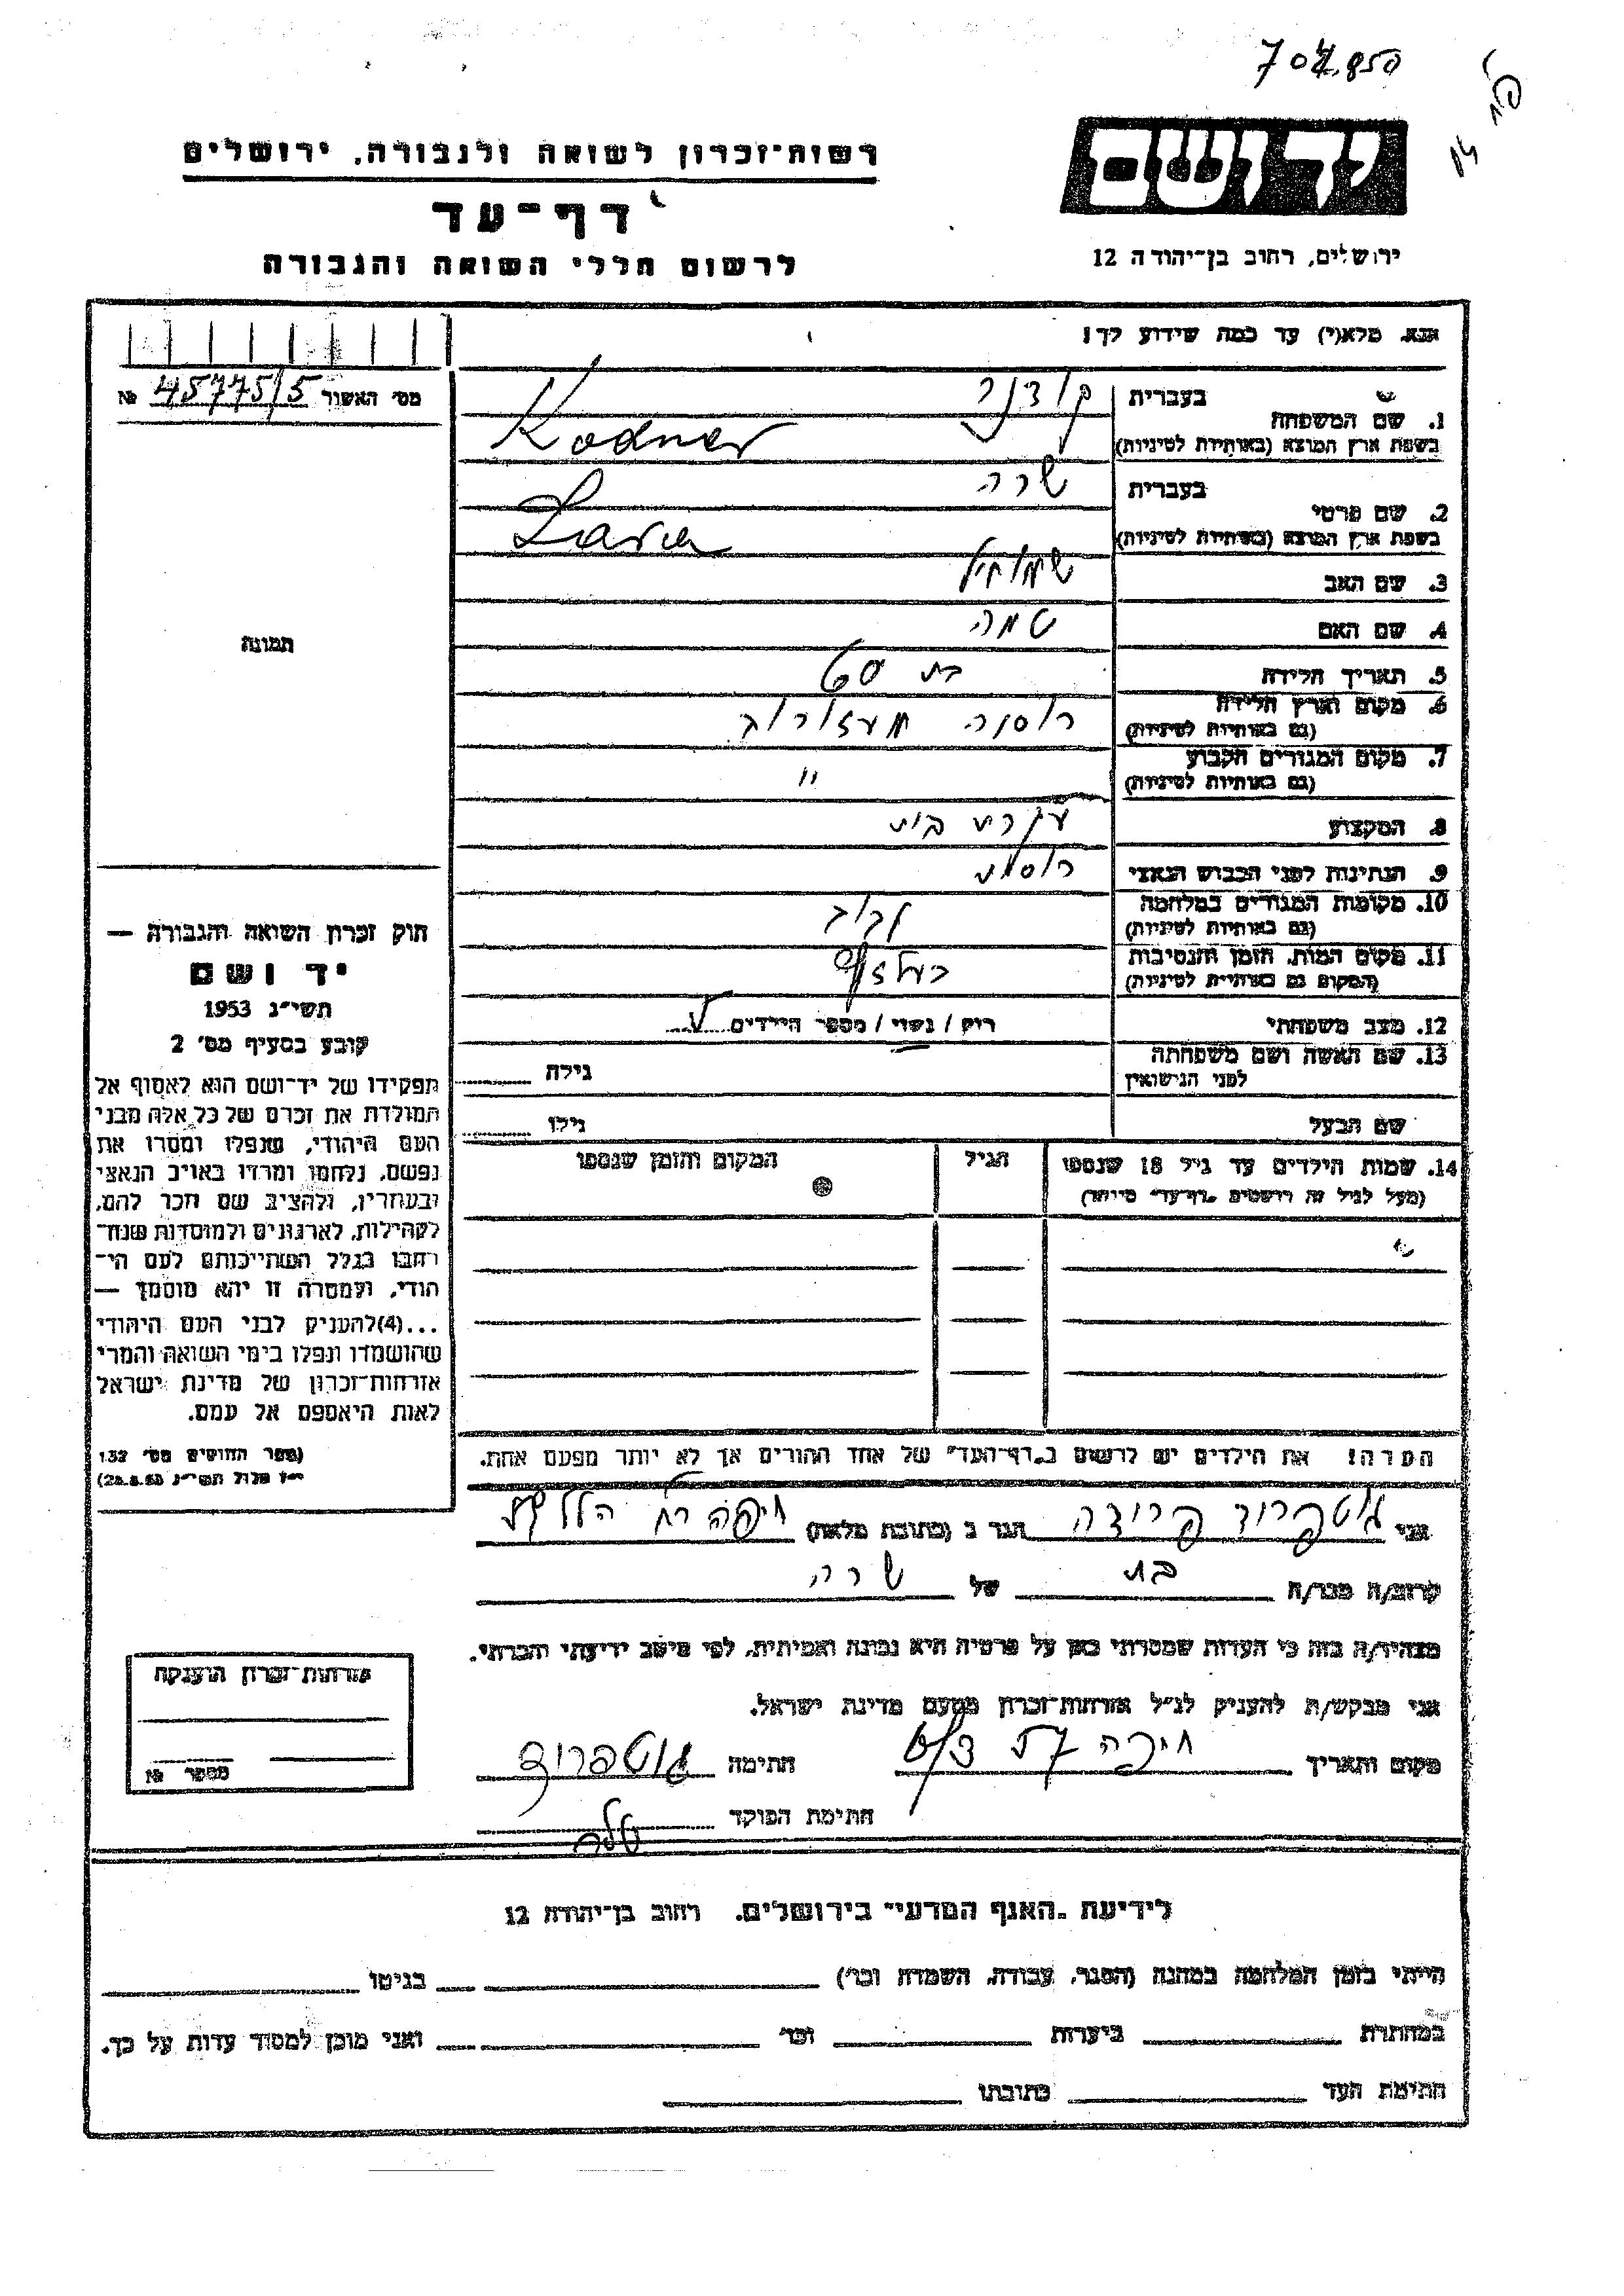 רשות־זכרון לשואה ולגבורה, ירושלים
דף־עד
לרשום חללי השואה והגבורה
יד ושם
ירושלים, רחוב בן־יהודה 12
אנא, מלא(י) עד כמה שידוע לך!
מס׳ האשור 45775/5 №
בעברית קודנר
1. שם המשפחה
בשפת ארץ המוצא (באותיות לטיניות) Kodner
בעברית שרה
2. שם פרטי
בשפת ארץ המוצא (באותיות לטיניות) Sara
3. שם האב
4. שם האם
5. תאריך הלידה בת 60
6. מקום וארץ הלידה רוסיה
(גם באותיות לטיניות)
7. מקום המגורים הקבוע "
(גם באותיות לטיניות)
8. המקצוע עקרת בית
9. הנתינות לפני הכבוש הנאצי
10. מקומות המגורים במלחמה
(גם באותיות לטיניות)
11. מקום המות, הזמן והנסיבות
(המקום גם באותיות לטיניות)
12. מצב משפחתי רוק / נשוי / מספר הילדים
13. שם האשה ושם משפחתה גילה
לפני הנישואין
שם הבעל גילו
14. שמות הילדים עד גיל 18 שנספו הגיל המקום והזמן שנספו
(מעל לגיל זה רושמים „דף־עד" מיוחד)
הערה! את הילדים יש לרשום ב„דף־העד" של אחד ההורים אך לא יותר מפעם אחת.
תמונה
חוק זכרון השואה והגבורה —
יד ושם
תשי״ג 1953
קובע בסעיף מס׳ 2
תפקידו של יד־ושם הוא לאסוף אל
המולדת את זכרם של כל אלה מבני
העם היהודי, שנפלו ומסרו את
נפשם, נלחמו ומרדו באויב הנאצי
ובעוזריו, ולהציב שם וזכר להם,
לקהילות, לארגונים ולמוסדות שנח־
רבו בגלל השתייכותם לעם הי־
הודי, ולמטרה זו יהא מוסמך —
...(4)להעניק לבני העם היהודי
שהושמדו ונפלו בימי השואה והמרי
אזרחות־זכרון של מדינת ישראל
לאות היאספם אל עמם.
(ספר החוקים מס׳ 132
י״ז אלול תשי״ג 28.8.53)
אני גוטפרוד פרודה הגר ב (כתובת מלאה) חיפה רח הלל
קרוב/ה מכר/ה בת של שרה
מצהיר/ה בזה כי העדות שמסרתי כאן על פרטיה היא נכונה ואמיתית, לפי מיטב ידיעתי והכרתי.
אני מבקש/ת להעניק לנ״ל אזרחות־זכרון מטעם מדינת ישראל.
מקום ותאריך חיפה חתימה גוטפרוד
חתימת הפוקד
אזרחות־זכרון הוענקה
מספר №
לידיעת „האגף המדעי" בירושלים, רחוב בן־יהודה 12
הייתי בזמן המלחמה במחנה (הסגר, עבודה, השמדה וכו׳) בגיטו
במחתרת ביערות וכו׳ ואני מוכן למסור עדות על כך.
חתימת העד כתובתו